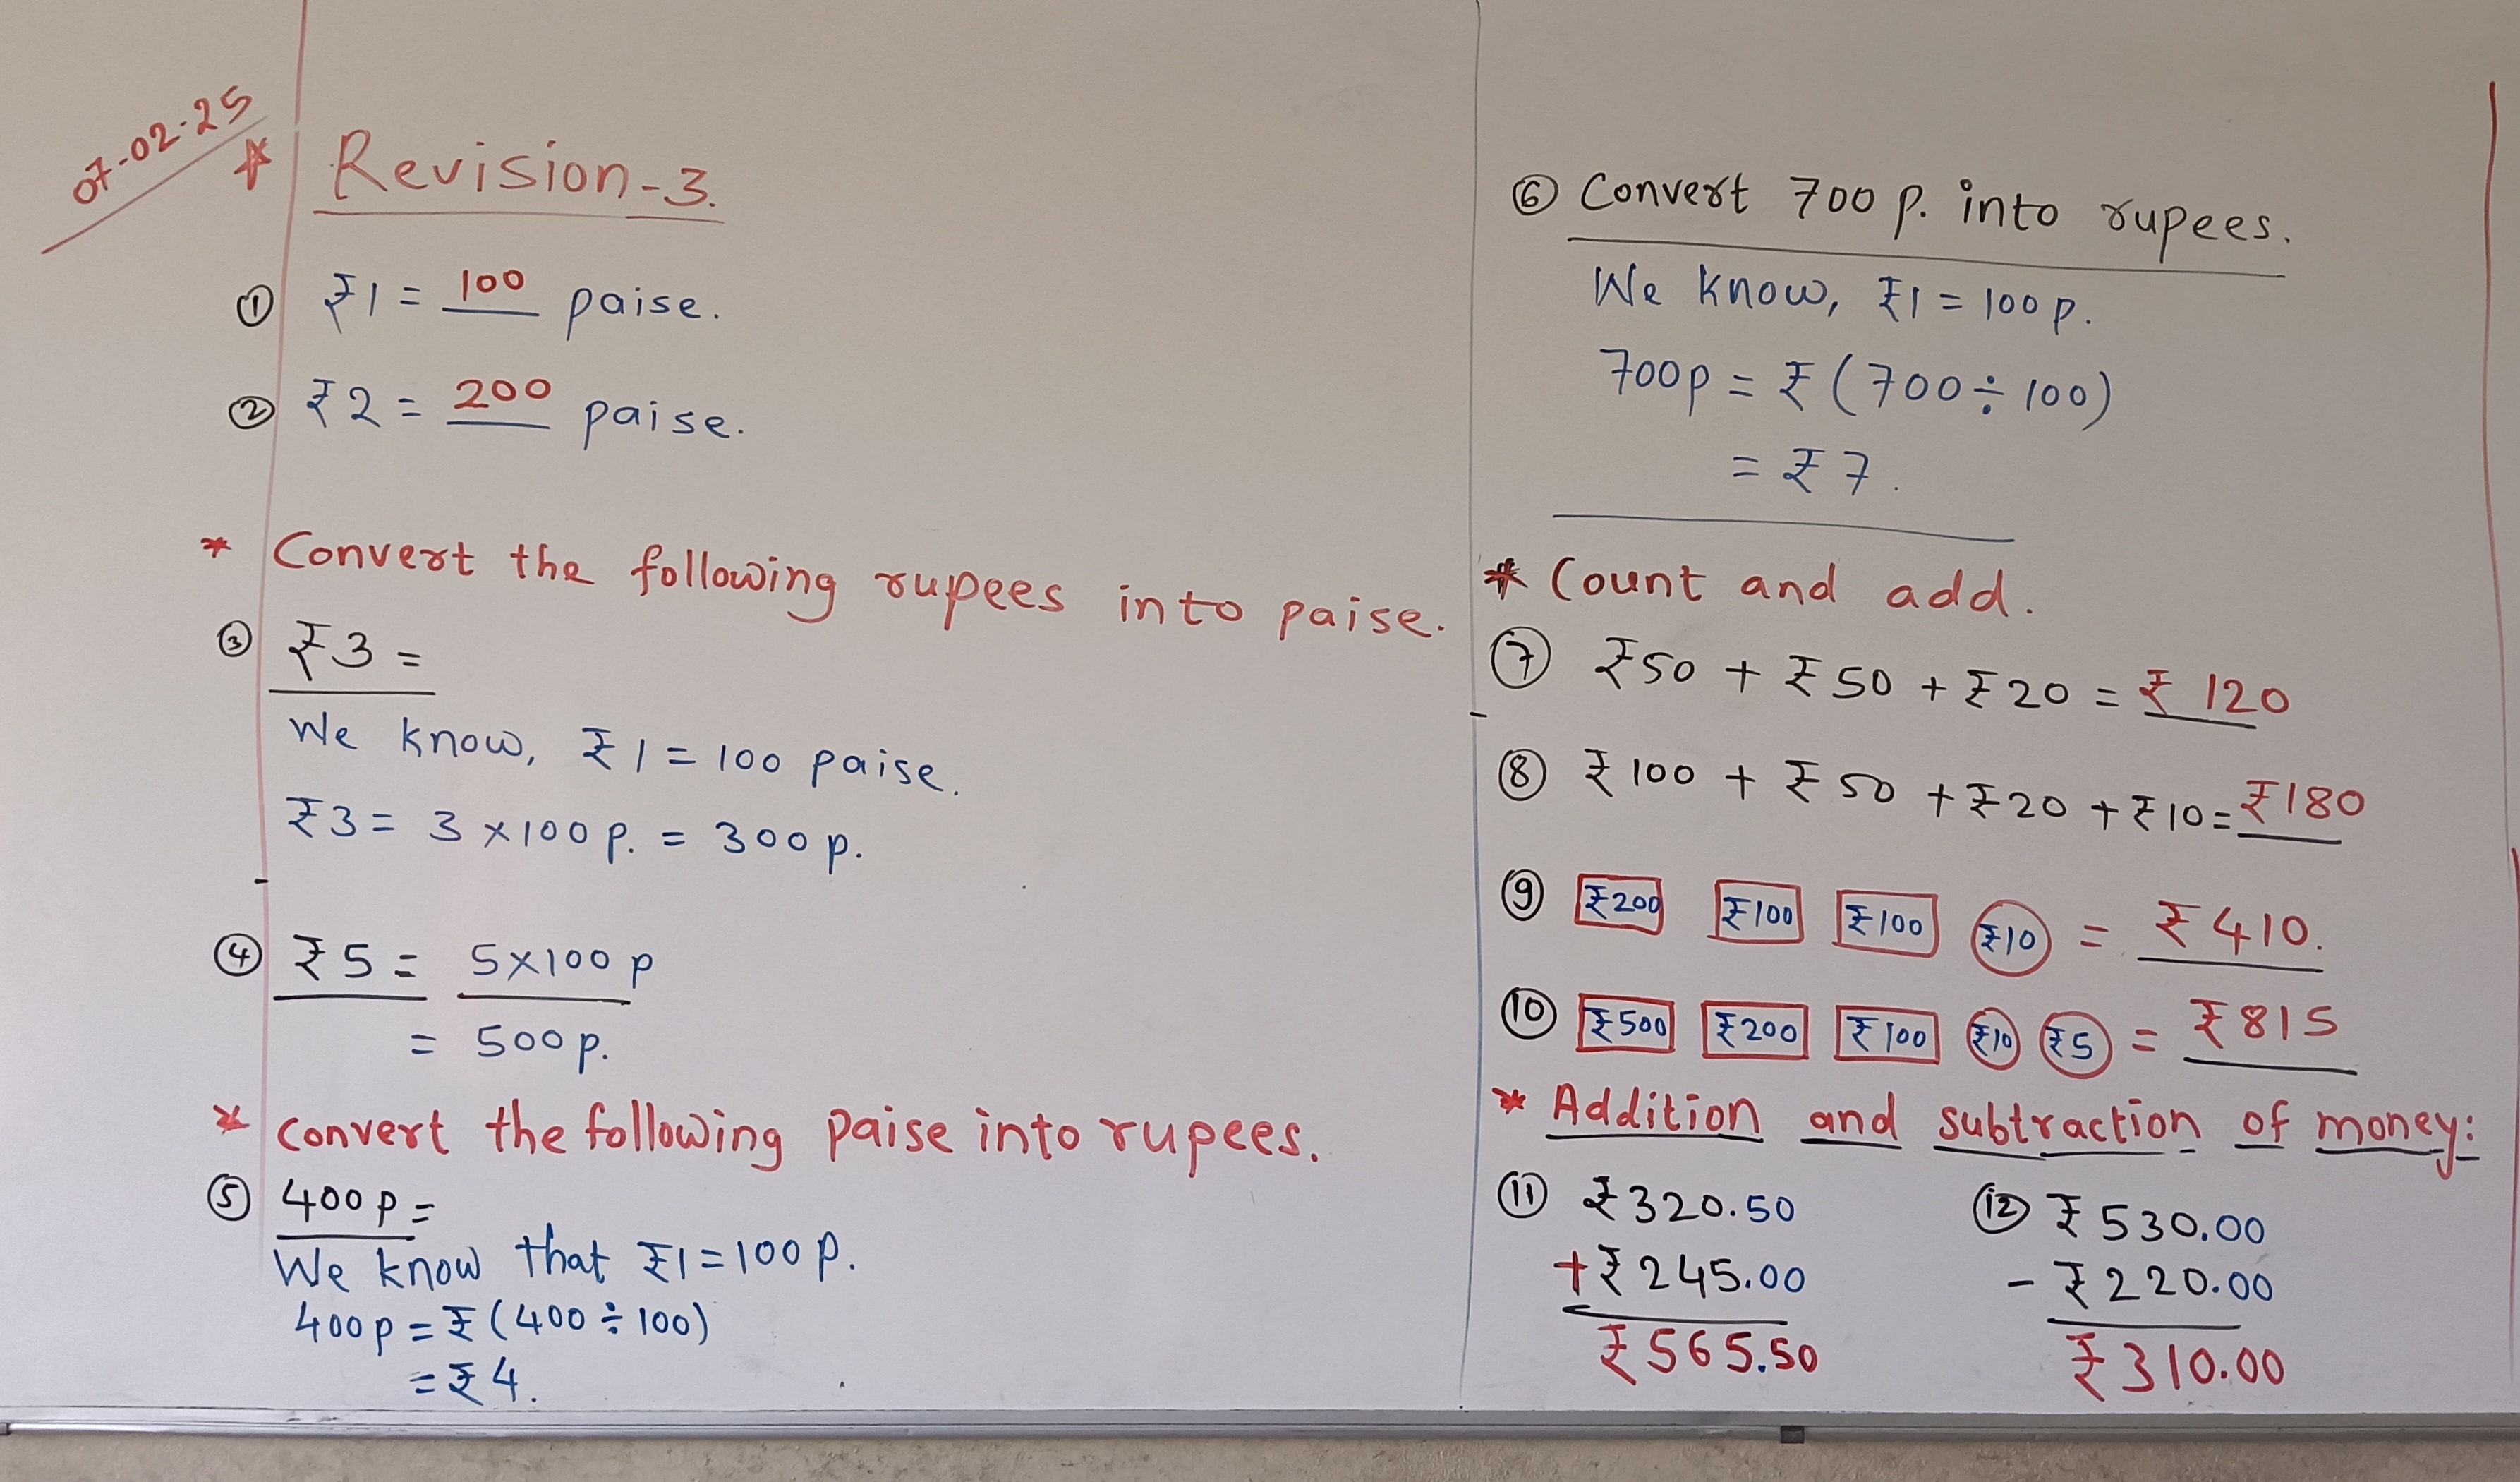 07-02-25
* Revision-3.
① ₹1 = 100 paise.
② ₹2 = 200 paise.
* Convert the following rupees into paise.
③ ₹3 =
We know, ₹1 = 100 paise.
₹3 = 3 × 100 p. = 300 p.
④ ₹5 = 5×100 p
= 500 p.
* convert the following paise into rupees.
⑤ 400 p =
We know that ₹1 = 100 p.
400 p = ₹ (400 ÷ 100)
= ₹ 4.
⑥ Convert 700 p. into rupees.
We know, ₹1 = 100 p.
700p = ₹ (700 ÷ 100)
= ₹ 7.
* Count and add.
⑦ ₹50 + ₹50 + ₹20 = ₹ 120
⑧ ₹100 + ₹50 + ₹20 + ₹10 = ₹180
⑨ ₹200 ₹100 ₹100 ₹10 = ₹410.
⑩ ₹500 ₹200 ₹100 ₹10 ₹5 = ₹815
* Addition and subtraction of money:
⑪ ₹320.50
+ ₹245.00
₹565.50
⑫ ₹530.00
- ₹220.00
₹310.00